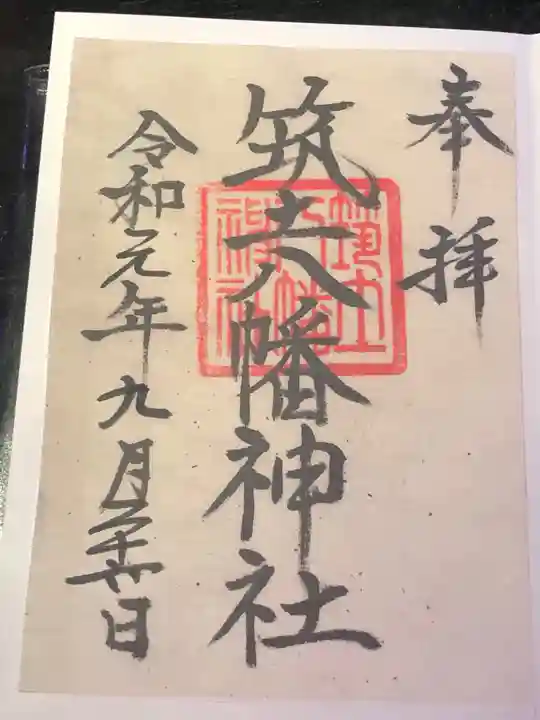 奉拝
筑土八幡神社
令和元年九月二十 日